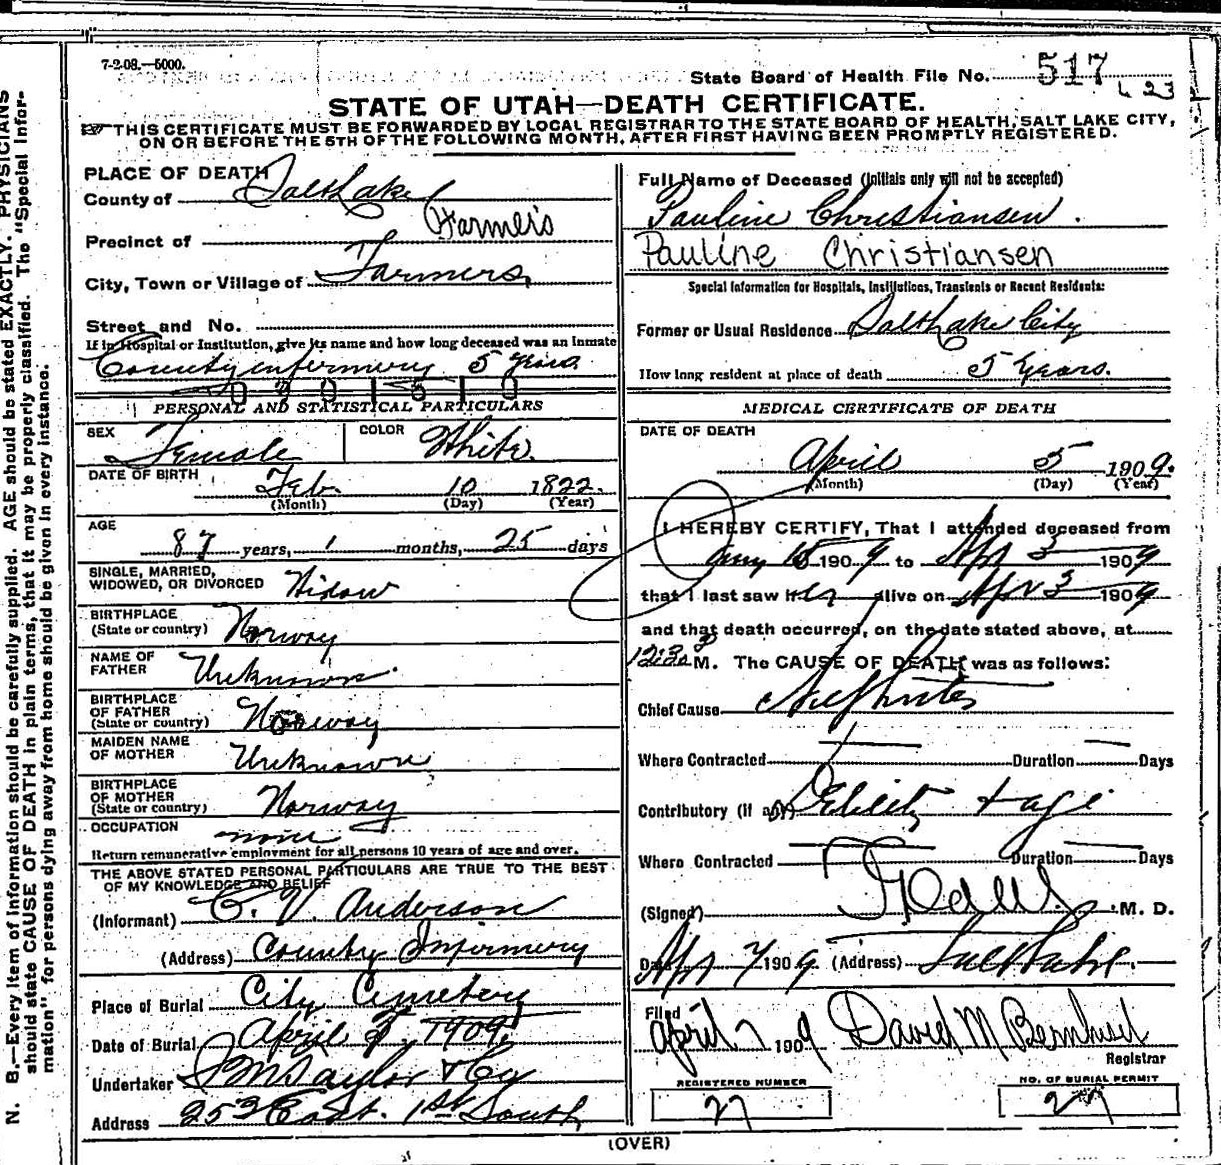 7-2-08.—5000.
State Board of Health File No. 517
L 23
STATE OF UTAH—DEATH CERTIFICATE.
THIS CERTIFICATE MUST BE FORWARDED BY LOCAL REGISTRAR TO THE STATE BOARD OF HEALTH, SALT LAKE CITY,
ON OR BEFORE THE 5TH OF THE FOLLOWING MONTH, AFTER FIRST HAVING BEEN PROMPTLY REGISTERED.
N. B.—Every item of information should be carefully supplied. AGE should be stated EXACTLY. PHYSICIANS
should state CAUSE OF DEATH in plain terms, that it may be properly classified. The "Special Infor-
mation" for persons dying away from home should be given in every instance.
PLACE OF DEATH
County of Salt Lake
Precinct of Farmers
City, Town or Village of Farmers
Street and No.
If in Hospital or Institution, give its name and how long deceased was an inmate
County infirmery 5 years
PERSONAL AND STATISTICAL PARTICULARS
SEX Female COLOR White.
DATE OF BIRTH
Feb 10 1822.
(Month) (Day) (Year)
AGE
87 years, 1 months, 25 days
SINGLE, MARRIED,
WIDOWED, OR DIVORCED Widow
BIRTHPLACE
(State or country) Norway
NAME OF
FATHER Unknown.
BIRTHPLACE
OF FATHER
(State or country) Norway
MAIDEN NAME
OF MOTHER Unknown
BIRTHPLACE
OF MOTHER
(State or country) Norway
OCCUPATION none
Return remunerative employment for all persons 10 years of age and over.
THE ABOVE STATED PERSONAL PARTICULARS ARE TRUE TO THE BEST
OF MY KNOWLEDGE AND BELIEF
(Informant) C. V. Anderson
(Address) County Infirmery
Place of Burial City Cemetery
Date of Burial April 1909
Undertaker S M Taylor & Co
Address 253 East. 1st South
Full Name of Deceased (Initials only will not be accepted)
Pauline Christiansen.
Pauline Christiansen
Special Information for Hospitals, Institutions, Transients or Recent Residents:
Former or Usual Residence Salt Lake City
How long resident at place of death 5 Years.
MEDICAL CERTIFICATE OF DEATH
DATE OF DEATH
April 5 1909.
(Month) (Day) (Year)
I HEREBY CERTIFY, That I attended deceased from
15 1909 to Apr 3 1909
that I last saw her alive on Apr 3 1909
and that death occurred, on the date stated above, at
12:30 P M. The CAUSE OF DEATH was as follows:
Chief Cause Nephritis
Where Contracted Duration Days
Contributory (if any) age
Where Contracted Duration Days
(Signed) M. D.
Date Apr 7 1909 (Address) Salt Lake.
Filed
April 7 1909 David M Bernhisel
Registrar
REGISTERED NUMBER NO. OF BURIAL PERMIT
27 27
(OVER)